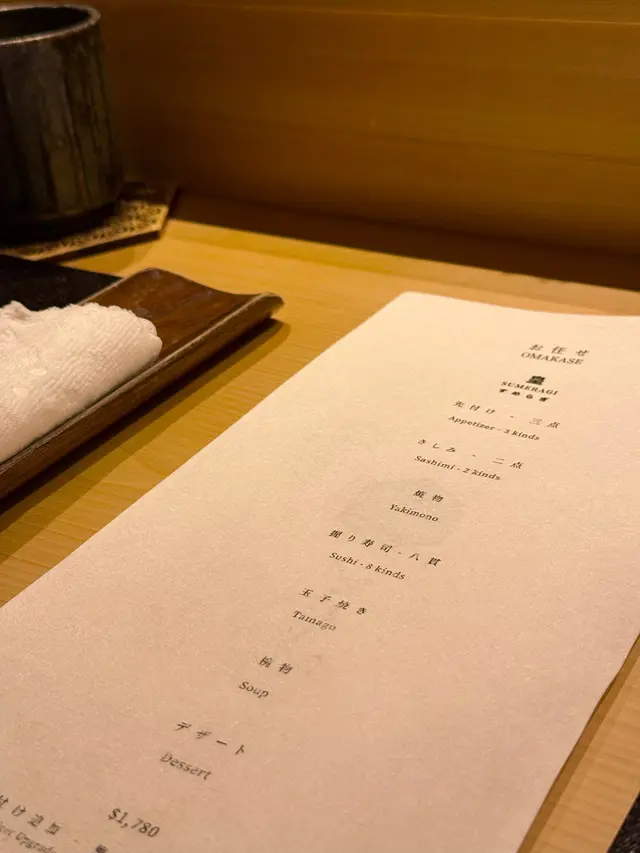 お任せ
OMAKASE
皇
SUMERAGI
すめらぎ
先付け - 三点
Appetizer - 3 kinds
さしみ - 二点
Sashimi - 2 kinds
焼物
Yakimono
握り寿司 - 八貫
Sushi - 8 kinds
玉子焼き
Tamago
椀物
Soup
デザート
Dessert
$1,780
付け追加
Upgrade